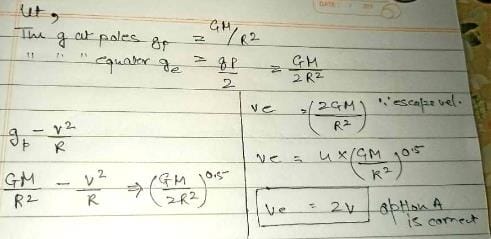 Let,
The g at poles gp = GM/R2
" " " equator ge = gP/2 = GM/2R2
gp - v2/R
GM/R2 - v2/R ⇒ (GM/2R2)0.5
ve = (2GM/R2) ∵ escape vel.
ve = 4×(GM/R2)0.5
Ve = 2V option A
is correct
DATE: